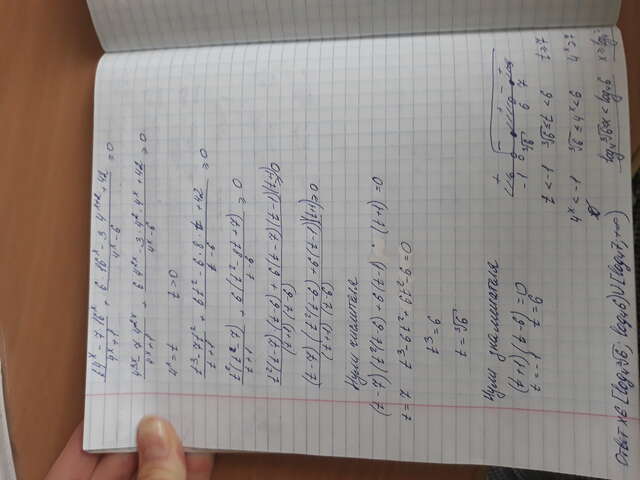 (64^x − 7·16^x)/(4^x+1) + (6·16^x − 3·4^(x+2) + 42)/(4^x−6) ≥0
(4^(3x) − 7·4^(2x))/(4^x+1) + (6·4^(2x) − 3·4^2·4^x + 42)/(4^x−6) ≥0
4^x = t t>0
(t^3−7t^2)/(t+1) + (6t^2 − 6·8·t + 42)/(t−6) ≥0
t^2(t−7)/(t+1) + 6(t^2−8t+7)/(t−6) ≥0
(t^2(t−7)(t−6) + 6(t−7)(t−1)(t+1))/((t+1)(t−6)) ≥0
(t−7)(t^2(t−6) + 6(t−1)(t+1))/((t+1)(t−6)) ≥0
Нули числителя
(t−7)(t^2(t−6) + 6(t−1) · (t+1) =0
t=7 t^3−6t^2+6t^2−6=0
t^3=6
t=∛6
Нули знаменателя
(t+1)(t−6)=0
t=−1 t=6
+ − + − +
−1 0 ∛6 6 7
t<−1 ∛6≤t<6 t≥7
4^x<−1 ∛6≤4^x<6 4^x≥7
log₄∛6≤x<log₄6 x≥log₄7
Ответ x∈[log₄∛6; log₄6)∪[log₄7;+∞)